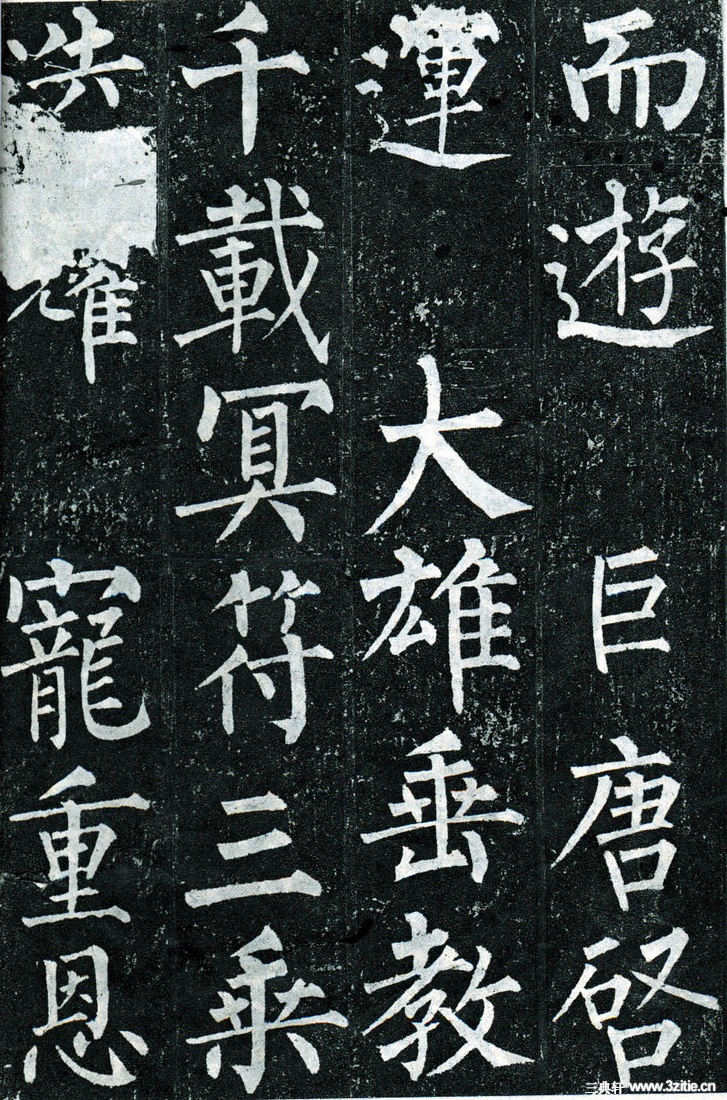 而遊巨唐啓
運大雄垂教
千載冥符三乘
寵重恩
三典轩 www.3zitie.cn